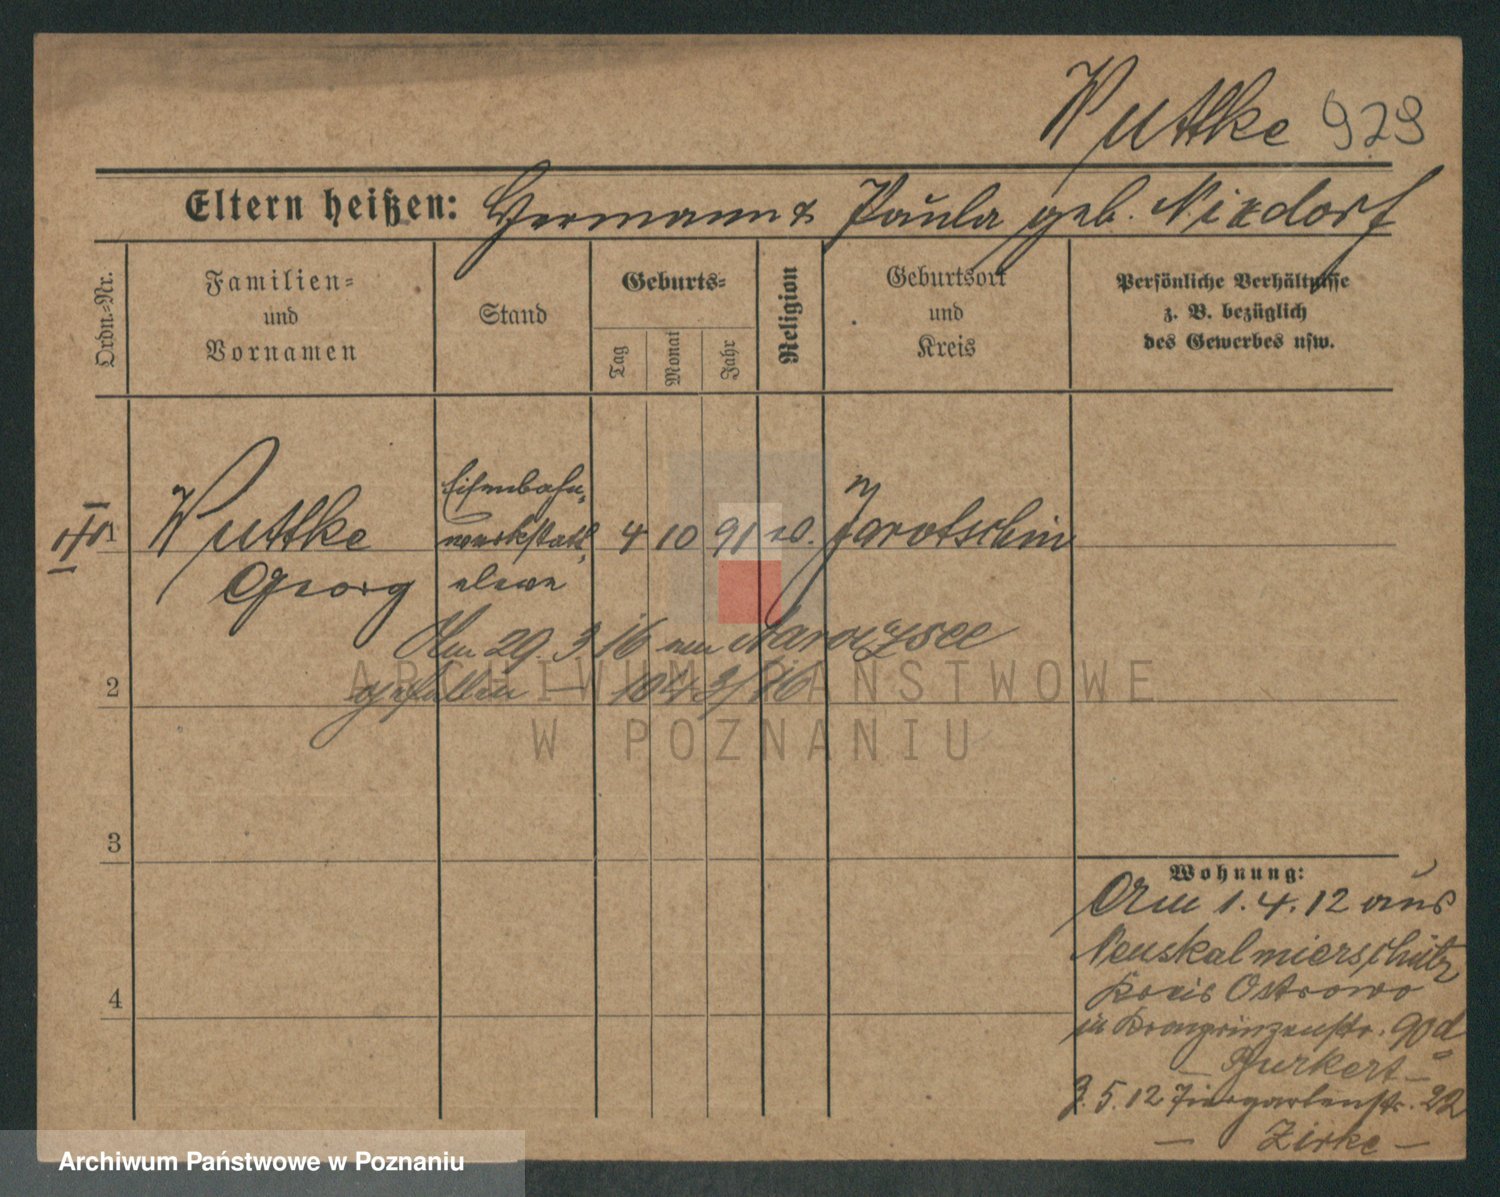 Wuttke 929
Eltern heißen: Hermann & Paula geb. Nixdorf
Ordn.-Nr.
Familien-
und
Vornamen
Stand
Geburts-
Tag
Monat
Jahr
Religion
Geburtsort
und
Kreis
Persönliche Verhältnisse
z. B. bezüglich
des Gewerbes usw.
1
Wuttke
Georg
Eisenbahn-
werkstatt-
eleve
4 10 91 ev. Jarotschin
Am 29.3.16 am Naroczsee
gefallen – 1043/16
2
3
4
Wohnung:
Am 1.4.12 aus
Neuskalmierschütz
Kreis Ostrowo
in Kronprinzenstr. 90d
– Burkert –
3.5.12 Tiergartenstr. 22
– Zirke –
ARCHIWUM PAŃSTWOWE
W POZNANIU
Archiwum Państwowe w Poznaniu